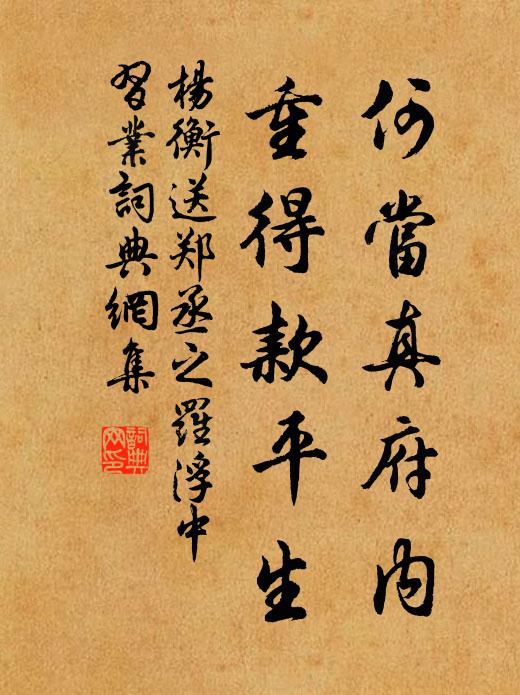 何當真府内
重得款平生
楊衡送郑丞之羅浮中
習業詞典網集
詞典
网印